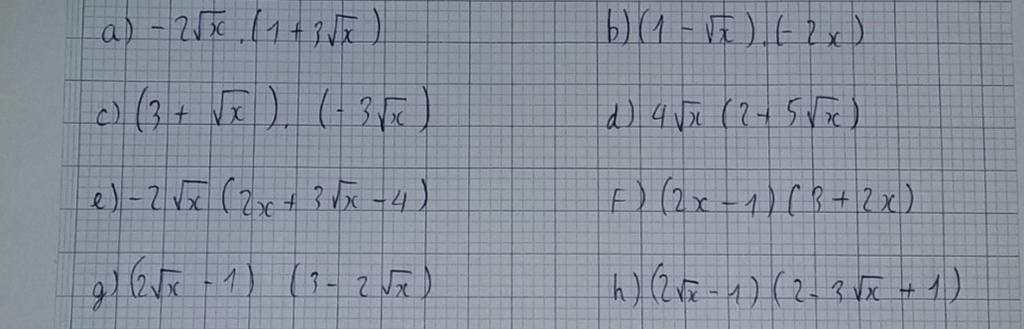 a) -2√x . (1 + 3√x) b) (1 - √x) . (-2x)
c) (3 + √x) . (-3√x) d) 4√x (2 + 5√x)
e) -2√x (2x + 3√x - 4) f) (2x - 1) (3 + 2x)
g) (2√x - 1) (3 - 2√x) h) (2√x - 1) (2 - 3√x + 1)